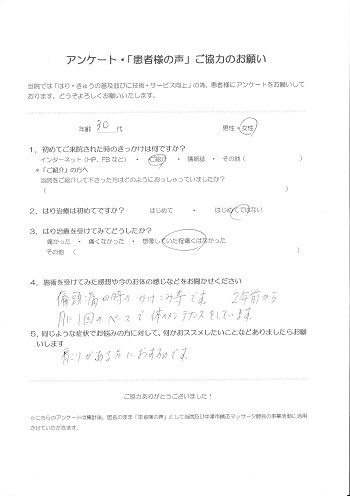 アンケート・「患者様の声」ご協力のお願い
当院では「はり・きゅうの普及並びに技術・サービス向上」の為、患者様にアンケートをお願いして
おります。どうぞよろしくお願いいたします。
年齢 30 代 男性・女性
1、初めてご来院された時のきっかけは何ですか?
インターネット(HP、FBなど) ・ ご紹介 ・ 情報誌 ・ その他( )
*「ご紹介」の方へ
当院をご紹介して下さった方はどのようにおっしゃっていましたか?
( )
2、はり治療は初めてですか? はじめて ・ はじめてではない
3、はり治療を受けてみてどうでしたか?
痛かった ・ 痛くなかった ・ 想像していた程痛くはなかった
その他 ( )
4、施術を受けてみた感想や今のお体の感じなどをお聞かせください
偏頭痛の時のかけこみ寺です。 2年前から
月に1回のペースで体のメンテナンスをしています。
5、同じような症状でお悩みの方に対して、何かおススメしたいことなどありましたらお願
いします
肩こりがある方におすすめです。
ご協力ありがとうございました!
☆こちらのアンケートは集計後、匿名のまま「患者様の声」として当院及び中津市鍼灸マッサージ師会の事業活動に活用
させていただきます。